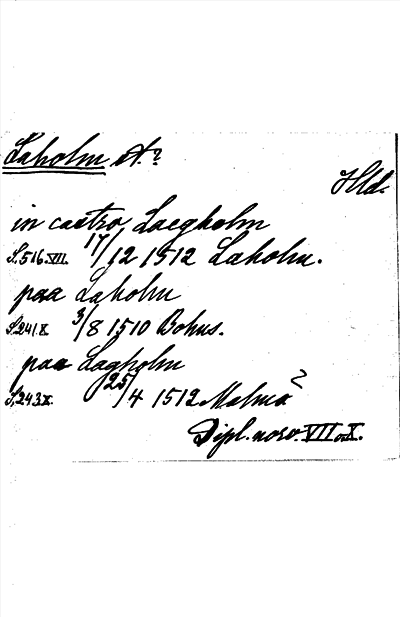 Laholm st.?
Hld.
in castro Laegholm
S. 516. VII. 17/12 1512 Laholm.
paa Laholm
S. 241. X. 3/8 1510 Bohus.
paa Lagholm
S. 243 X. 25/4 1512 Malmö?
Dipl. norv. VII o. X.